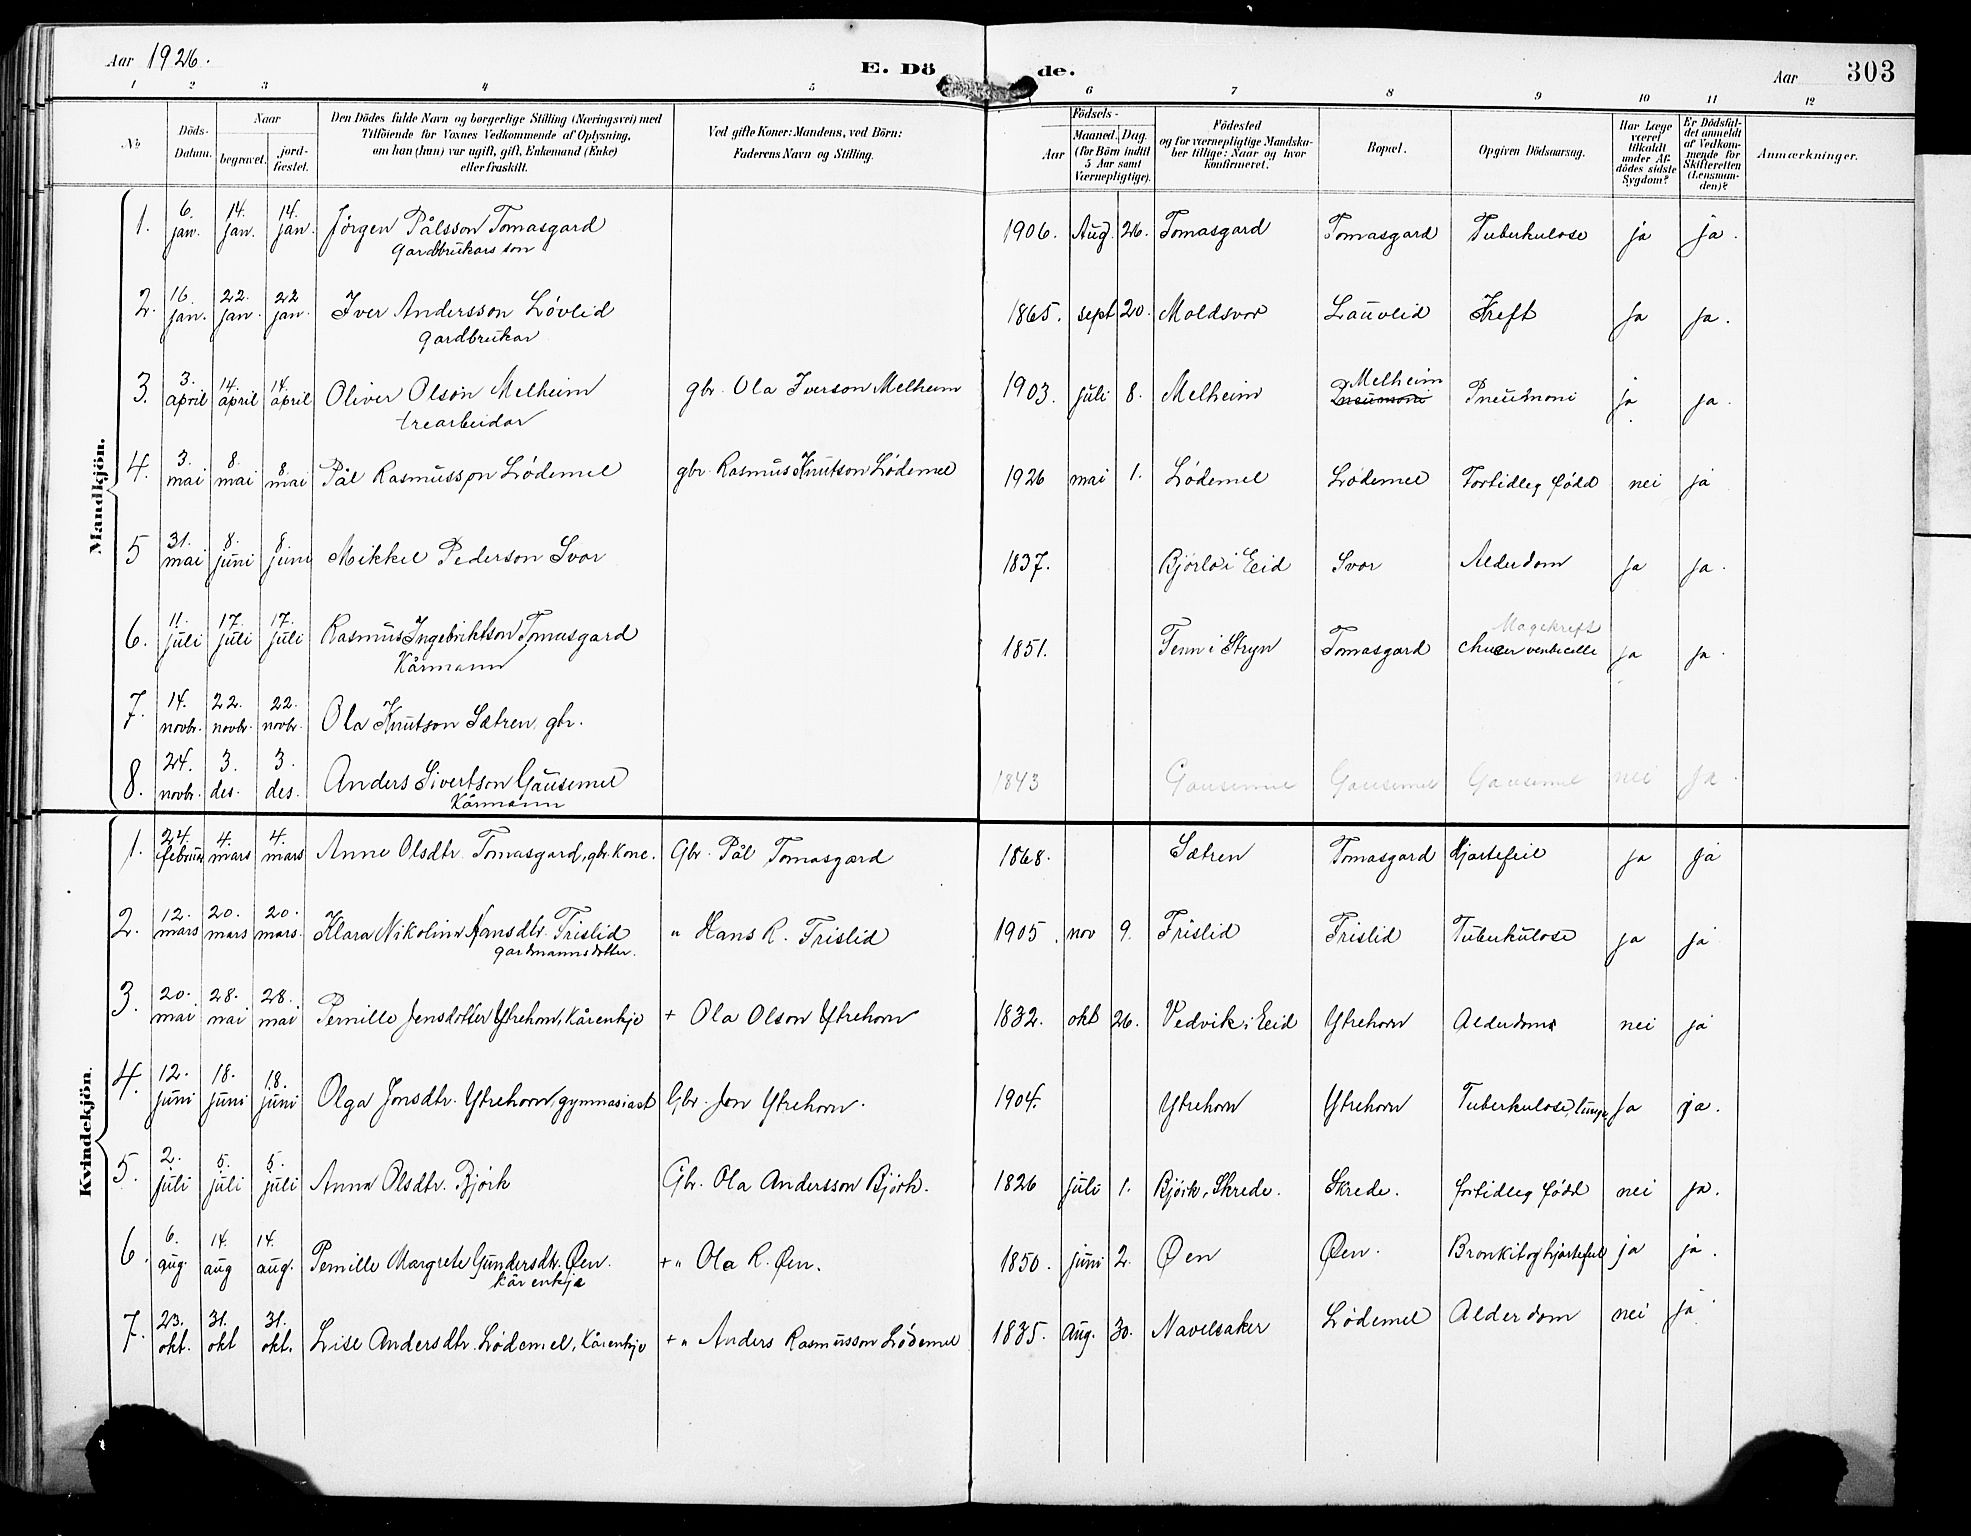 Aar 1926.
E. Dö de.
Aar 303
1 2 3 4 5 6 7 8 9 10 11 12
No
Döds-Datum.
Naar
begravet.
jord-fæstet.
Den Dödes fulde Navn og borgerlige Stilling (Næringsvei) med
Tilföiende for Voxnes Vedkommende af Oplysning,
om han (hun) var ugift, gift, Enkemand (Enke)
eller fraskilt.
Ved gifte Koner: Mandens, ved Börn:
Faderens Navn og Stilling.
Födsels-
Aar
Maaned. Dag.
(for Börn indtil
5 Aar samt
Værnepligtige).
Födested
og for værnepligtige Mandska-
ber tillige: Naar og hvor
konfirmeret.
Bopæl.
Opgiven Dödsaarsag.
Har Læge
været
tilkaldt
under Af-
dödes sidste
Sygdom?
Er Dödsfal-
det anmeldt
af Vedkom-
mende for
Skifteretten
(Lensman-
den)?
Anmærkninger.
Mandkjön.
1. 6. jan. 14. jan. 14. jan. Jørgen Pålsson Tomasgard 1906. Aug. 26. Tomasgard Tomasgard Tuberkulose ja ja.
gardbrukars son
2. 16. jan. 22. jan. 22 jan. Iver Andersson Løvlid 1865. sept 20. Moldsvor Lauvlid Kreft ja ja.
gardbrukar
3. 3. april 14. april 14. april Oliver Olson Melheim gbr. Ola Iverson Melheim 1903. juli 8. Melheim Melheim Pneumoni Pneumoni ja ja.
trearbeidar
4. 3. mai 8. mai 8. mai Pål Rasmusson Lødemel gbr. Rasmus Knutson Lødemel 1926 mai 1. Lødemel Lødemel Fortidleg född nei ja
5 31. mai 8. juni 8. juni Mikkel Pederson Svor 1837. Bjørlo i Eid Svor Alderdom ja ja.
6. 11. juli 17. juli 17. juli Rasmus Ingebriktson Tomasgard 1851. Tenn i Stryn Tomasgard Magekreft ja ja.
Kårmann
7. 14. novbr. 22. novbr. 22. novbr. Ola Knutson Sætren, gbr.
8. 24. novbr. 3. des. 3. des. Anders Sivertson Gausemel 1843 Gausemel Gausemel Gausemel nei ja.
Kårmann
Kvindekjön.
1. 24. februar 4. mars 4. mars Anne Olsdtr. Tomasgard, gbr. kone. Gbr. Pål Tomasgard 1868. Sætren Tomasgard Hjartefeil ja ja
2. 12. mars 20. mars 20. mars. Klara Nikoline Hansdtr. Frislid " Hans R. Frislid 1905. nov 9. Frislid Frislid Tuberkulose ja ja
gardmannsdotter.
3. 20. mai 28. mai 28. mai Pernille Jensdotter Ytrehorn, Kårenkje + Ola Olson Ytrehorn 1832. okt 26. Vedvik i Eid Ytrehorn Alderdom nei ja
4. 12. juni 18. juni 18. juni Olga Jonsdtr. Ytrehorn, gymnasiast Gbr. Jon Ytrehorn. 1904. Ytrehorn Ytrehorn Tuberkulose, lunge ja ja.
5. 2. juli 5. juli 5. juli Anna Olsdtr. Bjørk Gbr. Ola Andersson Bjørk. 1826 juli 1. Bjørk, Skrede. Skrede. fortidleg född nei ja.
6. 6. aug. 14. aug 14. aug. Pernille Margrete Gundersdtr. Øen. + " Ola R. Øen. 1850. juni 2. Øen Øen. Bronkit og hjartefeil ja ja.
kårenkje
7. 23. okt. 31. okt 31. okt. Lise Andersdtr. Lødemel, Kårenkje + " Anders Rasmusson Lødemel 1835. Aug. 30. Navelsaker Lødemel Alderdom nei ja.